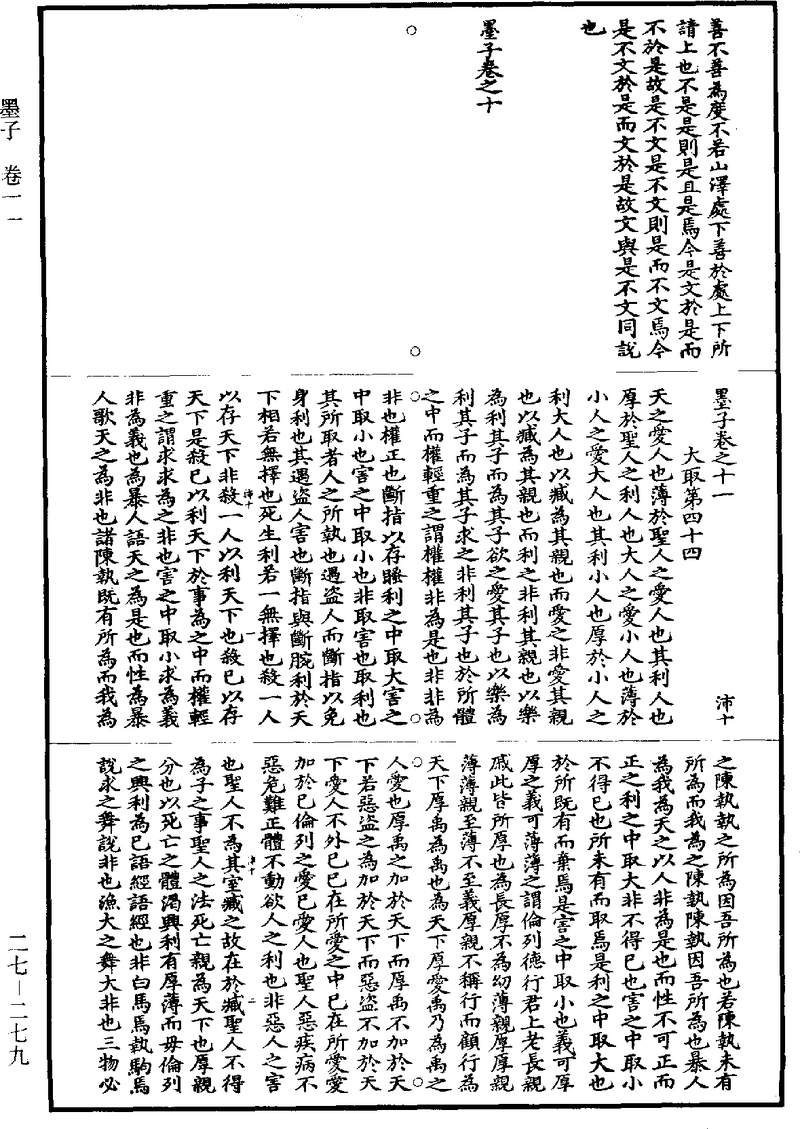 善不善為度不若山澤處下善於處上下所
請上也不是是則是且是焉今是文於是而
不於是故是不文是不文則是而不文焉今
是不文於是而文於是故文與是不文同說
也
墨子卷之十
墨子卷之十一
沛十
大取第四十四
天之愛人也薄於聖人之愛人也其利人也
厚於聖人之利人也大人之愛小人也薄於
小人之愛大人也其利小人也厚於小人之
利大人也以臧為其親也而愛之非愛其親
也以臧為其親也而利之非利其親也以樂
為利其子而為其子欲之愛其子也以樂為
利其子而為其子求之非利其子也於所體
之中而權輕重之謂權權非為是也非非為
非也權正也斷指以存㧖利之中取大害之
中取小也害之中取小也非取害也取利也
其所取者人之所執也遇盜人而斷指以免
身利也其遇盜人害也斷指與斷腕利於天
下相若無擇也死生利若一無擇也殺一人
以存天下非殺一人以利天下也殺已以存
天下是殺已以利天下於事為之中而權輕
重之謂求求為之非也害之中取小求為義
非為義也為暴人語天之為是也而性為暴
人歌天之為非也諸陳執既有所為而我為
之陳執執之所為因吾所為也若陳執未有
所為而我為之陳執陳執因吾所為也暴人
為我為天之以人非為是也而性不可正而
正之利之中取大非不得已也害之中取小
不得已也所未有而取焉是利之中取大也
於所既有而棄焉是害之中取小也義可厚
厚之義可薄薄之謂倫列德行君上老長親
戚此皆所厚也為長厚不為幼薄親厚厚親
薄薄親至薄不至義厚親不稱行而顧行為
天下厚禹為禹也為天下厚愛禹乃為禹之
人愛也厚禹之加於天下而厚禹不加於天
下若惡盜之為加於天下而惡盜不加於天
下愛人不外已已在所愛之中已在所愛愛
加於已倫列之愛已愛人也聖人惡疾病不
惡危難正體不動欲人之利也非惡人之害
也聖人不為其室臧之故在於臧聖人不得
為子之事聖人之法死亡親為天下也厚親
分也以死亡之體渴興利有厚薄而毋倫列
之興利為已語經語經也非白馬馬執駒馬
說求之舞說非也漁大之舞大非也三物必
墨子 卷一一
二七—二七九